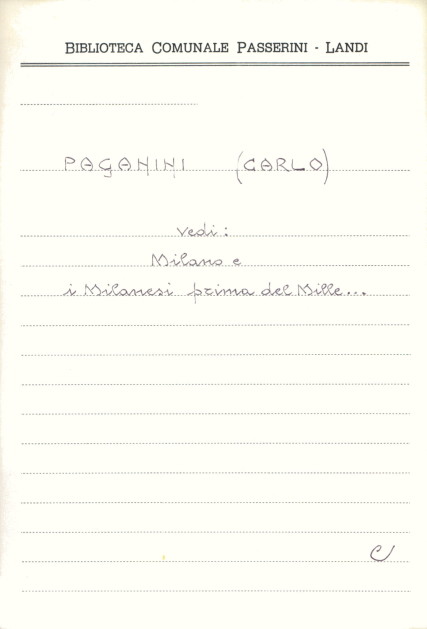 BIBLIOTECA COMUNALE PASSERINI - LANDI
PAGANINI (CARLO)
vedi:
Milano e
i Milanesi prima del Mille...